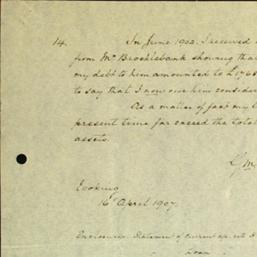 14. In June 1902. I received
from Mr Brocklebank showing tha
my debt to him amounted to £1768
to say that I now owe him consider
As a matter of fact my l
present time far exceed the total
assets.
16th April 1907.
Enclosure: Statement of current
Loan